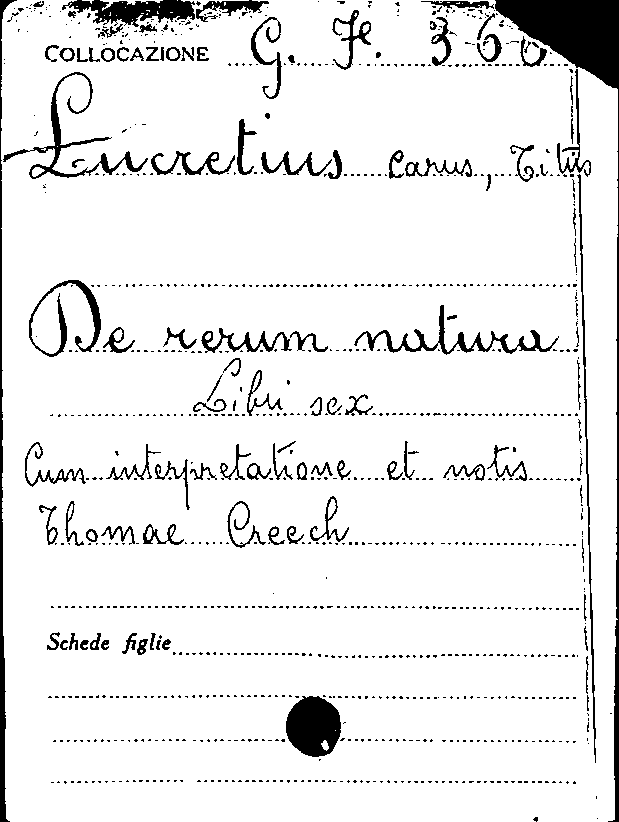 COLLOCAZIONE G. H. 360
Lucretius Carus, Titus
De rerum natura
Libri sex
Cum interpretatione et notis
Thomae Creech
Schede figlie